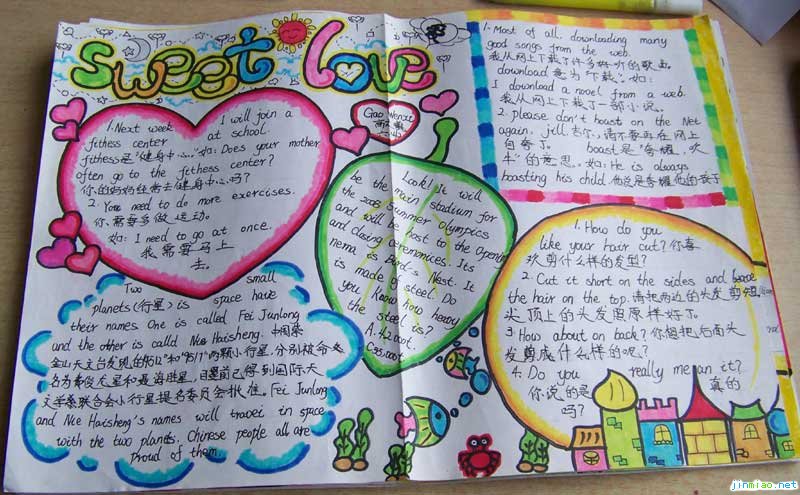 sweet love
Gao Wenxi
1. Next week I will join a
fithess center at school.
fithess是"健身中心"。如: Does your mother
often go to the fithess center?
你的妈妈经常去健身中心吗?
2. You need to do more exercises.
你需要多做运动。
如: I need to go at once.
我需要马上
去。
Look! It will
be the main stadium for
the 2008 Summer Olympics
and will be host to the Opening
and closing ceremonies. Its
nema is Bird's Nest. It
is made of steel. Do
you know how heavy
the steel is?
A. 42000t.
1. Most of all. downloading many
good songs from the web.
我从网上下载了许多好听的歌曲
download 意为"下载"。如:
I download a novel from a web.
我从网上下载了一部小说。
2. please don't boast on the Net
again. jill 吉尔,请不要再在网上
自夸了。 boast是"夸耀,吹
牛"的意思。如: He is always
boasting his child. 他总是夸耀他的孩子
Two small
planets(行星) is space have
their names One is called Fei Junlong
and the other is called Nie Haisheng. 中国紫
金山天文台发现的 和 两颗小行星,分别被命
名为费俊龙星和聂海胜星,目前已得到国际天
文学联合会小行星提名委员会批准。Fei Junlong
and Nie Haisheng's names will travel in space
with the two planets. Chinese people all are
proud of them
1. How do you
like your hair cut? 你喜
欢剪什么样的发型?
2. Cut it short on the sides and
the hair on the top. 请把两边的头发剪短,
头顶上的头发照原样好了。
3. How about on back? 你想把后面头
发剪成什么样的呢?
4. Do you really mean it?
你说的是 真的
吗?
jinmiao.net